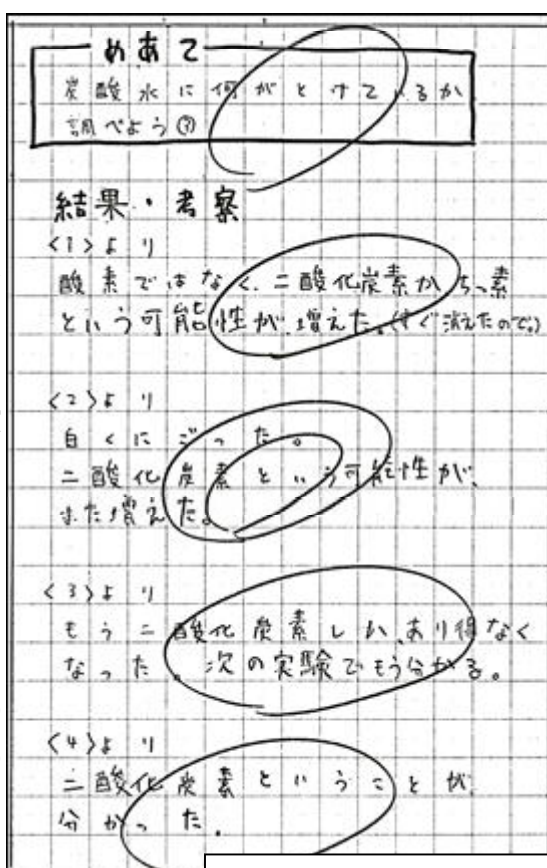 めあて
炭酸水に何がとけているか
調べよう③
結果・考察
<1>より
酸素ではなく、二酸化炭素かちっ素
という可能性が、増えた。(すぐ消えたので。)
<2>より
白くにごった。
二酸化炭素という可能性が、
また増えた。
<3>より
もう二酸化炭素しか、あり得なく
なった。次の実験でもう分かる。
<4>より
二酸化炭素ということが
分かった。